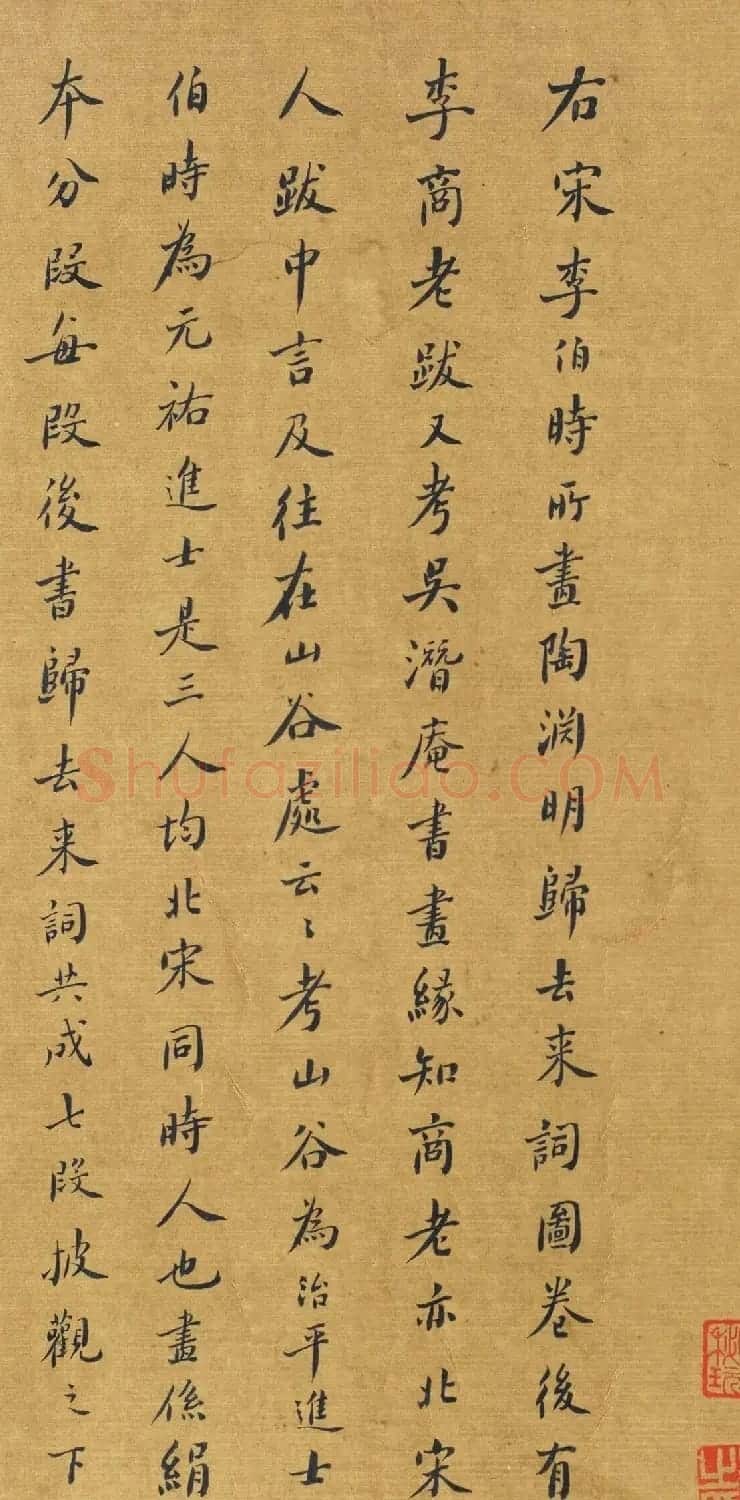 右宋李伯時所畫陶渊明歸去来詞圖卷後有
李商老跋又考吳濳庵書畫緣知商老亦北宋
人跋中言及往在山谷處云〻考山谷為治平進士
伯時為元祐進士是三人均北宋同時人也畫係絹
本分段每段後書歸去来詞共成七段披觀之下
Shufaziliao.COM